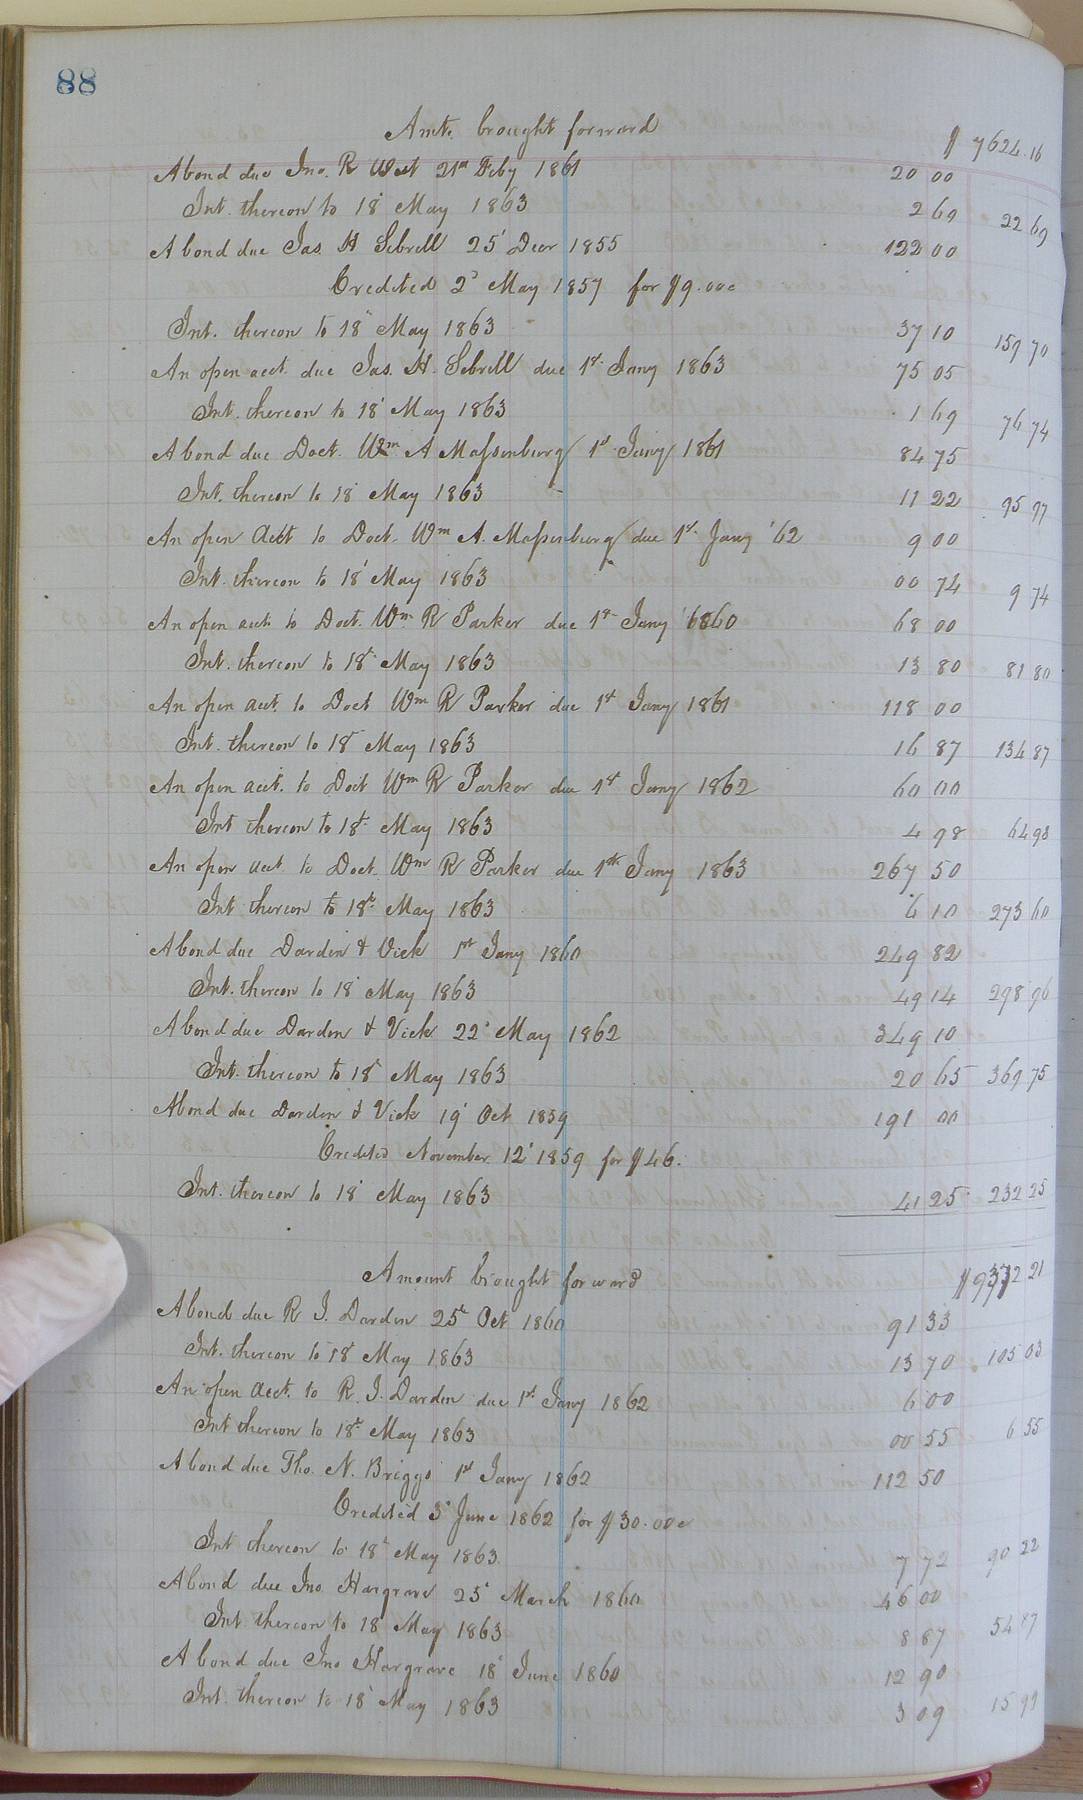 88
Amt. brought forward $ 7624.16
A bond due Jno. R West 21st Feby 1861 20 00
Int. thereon to 18 May 1863 2 69 22 69
A bond due Jas. H Sebrell 25' Decr 1855 122 00
Credited 2d May 1857 for $9.00c
Int. thereon to 18 May 1863 37 10 159 70
An open acct. due Jas. H. Sebrell due 1st Jany 1863 75 05
Int. thereon to 18' May 1863 1 69 76 74
A bond due Doct. Wm A Massenburg 1st Jany 1861 84 75
Int. thereon to 18 May 1863 11 22 95 97
An open Acct to Doct. Wm A. Massenburg due 1st. Jany '62 9 00
Int. thereon to 18' May 1863 00 74 9 74
An open acct to Doct. Wm R Parker due 1st Jany 1860 68 00
Int. thereon to 18t May 1863 13 80 81 80
An open acct. to Doct Wm R Parker due 1st Jany 1861 118 00
Int. thereon to 18t May 1863 16 87 134 87
An open acct. to Doct Wm R Parker due 1st Jany 1862 60 00
Int thereon to 18t May 1863 4 98 64 98
An open acct to Doct. Wm R Parker due 1st Jany 1863 267 50
Int thereon to 18t May 1863 6 10 273 60
A bond due Darden & Vick 1st Jany 1860 249 82
Int. thereon to 18 May 1863 49 14 298 96
A bond due Darden & Vick 22d May 1862 349 10
Int. thereon to 18t May 1863 20 65 369 75
A bond due Darden & Vick 19' Oct 1859 191 00
Credited November 12' 1859 for $46.
Int. thereon to 18 May 1863 41 25 232 25
Amount brought forward $ 21
A bond due R J. Darden 25t Oct 1860 91 33
Int. thereon to 18t May 1863 13 70 105 03
An open acct. to R. J. Darden due 1st. Jany 1862 6 00
Int thereon to 18t May 1863 00 55 6 55
A bond due Tho. N. Briggs 1st Jany 1862 112 50
Credited 3d June 1862 for $30.00c
Int thereon to 18t May 1863. 7 72 90 22
A bond due Jno Hargrave 25' March 1860 46 00
Int thereon to 18 May 1863 8 87 54 87
A bond due Jno Hargrave 18' June 1860 12 90
Int. thereon to 18' May 1863 3 09 15 99